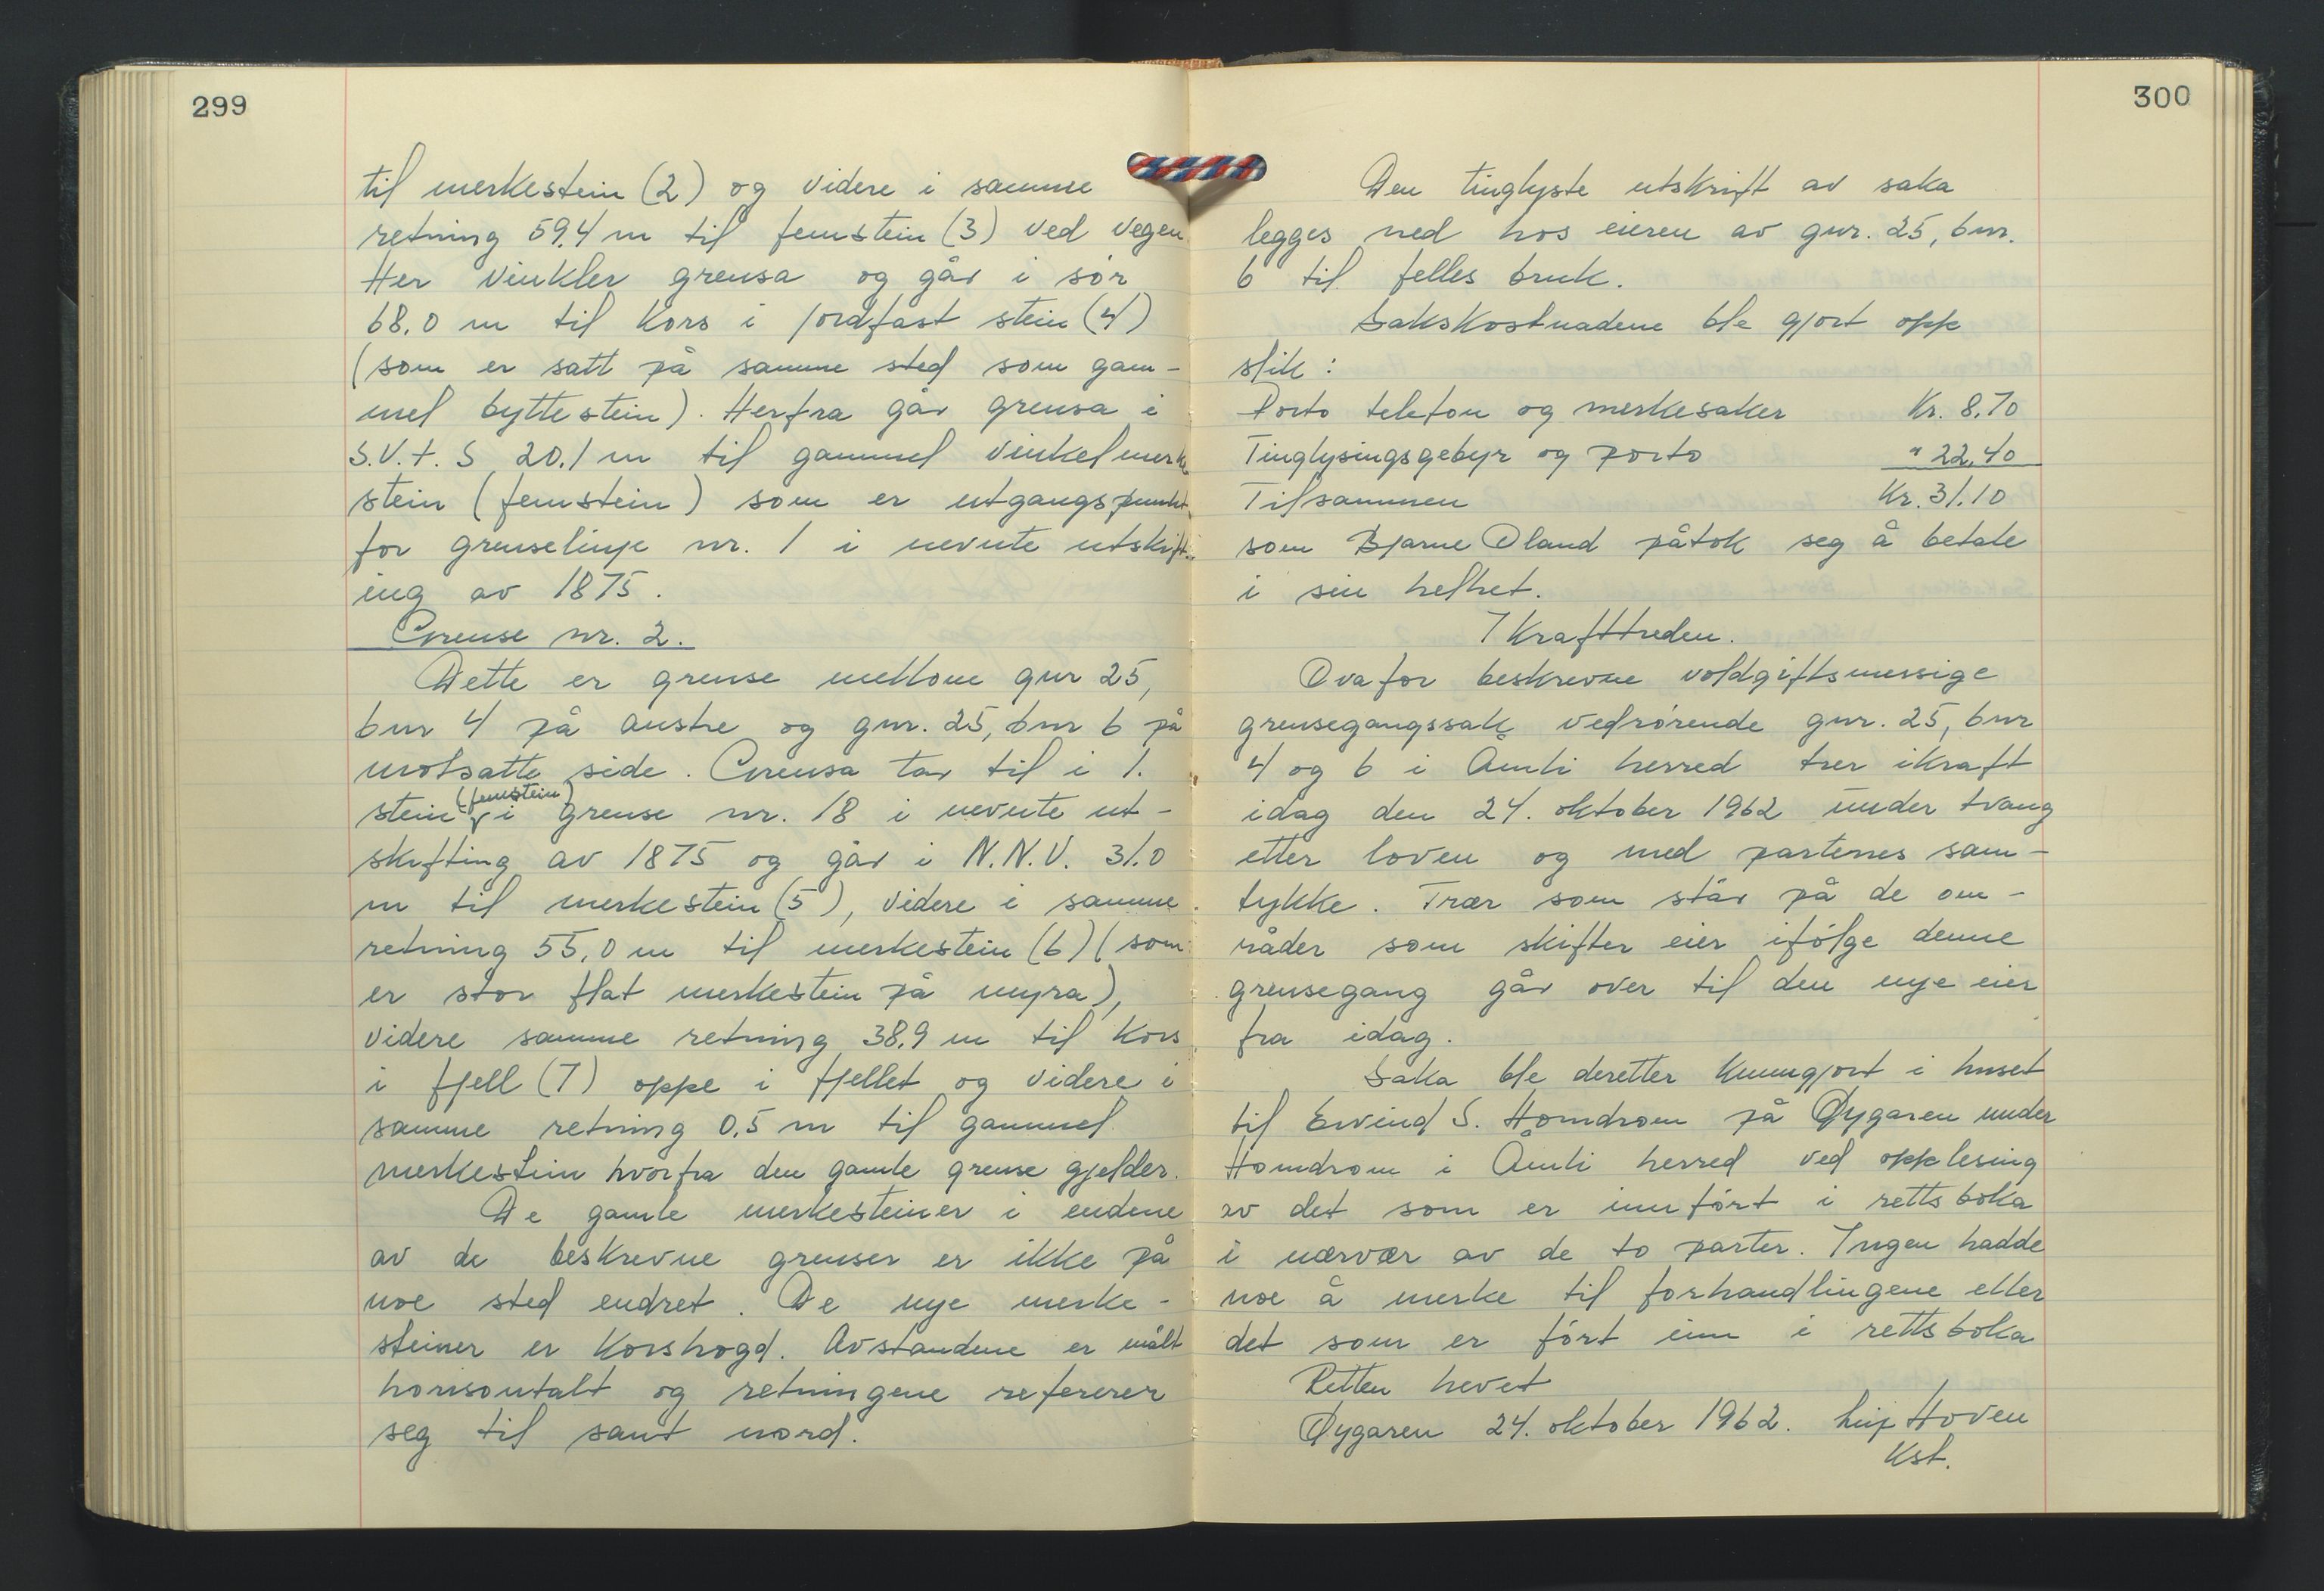 299
til merkestein (2) og videre i samme
retning 59,4 m til femstein (3) ved vegen
Her vinkler grensa og går i sør
68,0 m til kors i jordfast stein (4)
(som er satt på samme sted som gam-
mel byttestein). Herfra går grensa i
S.V.t.S 20,1 m til gammel vinkelmerke
stein (femstein) som er utgangspunkt
for grenselinje nr. 1 i nevnte utskift-
ing av 1875.
Grense nr. 2.
Dette er grense mellom gnr 25,
bnr 4 på austre og gnr. 25, bnr 6 på
motsatte side. Grensa tar til i 1.
(femstein)
stein i grense nr. 18 i nevnte ut-
skifting av 1875 og går i N.N.V. 31.0
m til merkestein (5), videre i samme
retning 55,0 m til merkestein (6) (som
er stor flat merkestein på myra),
videre samme retning 38,9 m til kors
i fjell (7) oppe i fjellet og videre i
samme retning 0,5 m til gammel
merkestein hvorfra den gamle grense gjelder.
De gamle merkesteiner i endene
av de beskrevne grenser er ikke på
noe sted endret. De nye merke-
steiner er korshogd. Avstandene er målt
horisontalt og retningene refererer
seg til sant nord.
300
Den tinglyste utskrift av saka
legges ned hos eieren av gnr. 25, bnr.
6 til felles bruk.
Sakskostnadene ble gjort opp
slik:
Porto telefon og merkesaker Kr. 8,70
Tinglysingsgebyr og porto " 22,40
Tilsammen Kr. 31.10
som Bjarne Oland påtok seg å betale
i sin helhet.
Ikrafttreden.
Ovafor beskrevne voldgiftsmessige
grensegangssak vedrørende gnr. 25, bnr
4 og 6 i Åmli herred trer ikraft
idag den 24. oktober 1962 under tvang
etter loven og med partenes sam-
tykke. Trær som står på de om-
råder som skifter eier ifølge denne
grensegang går over til den nye eier
fra idag.
Saka ble deretter kunngjort i huset
til Eivind S. Homdrom på Øygaren under
Homdrom i Åmli herred ved opplesing
av det som er innført i rettsboka
i nærvær av de to parter. Ingen hadde
noe å merke til forhandlingene eller
det som er ført inn i rettsboka
Retten hevet
Øygaren 24. oktober 1962. Hoven
Kst.